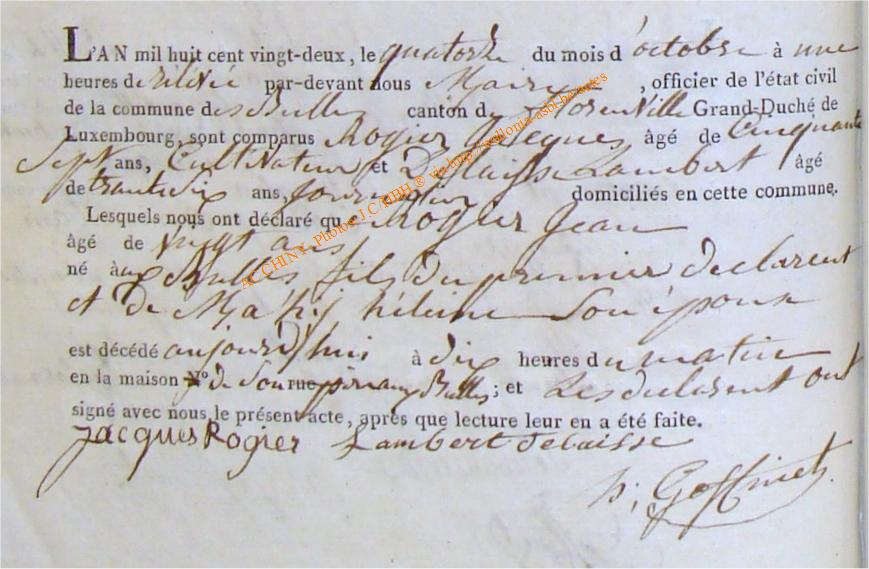 L'AN mil huit cent vingt-deux, le quatorze du mois d'octobre à une
heures de relivée par-devant nous Maire , officier de l'état civil
de la commune des Bulles canton de florenville Grand-Duché de
Luxembourg, sont comparus Rogier Jacques âgé de Cinquante
Sept ans, Cultivateur et Delaisse Lambert âgé
de trente six ans, Journalier domiciliés en cette commune.
Lesquels nous ont déclaré que Rogier Jean
âgé de Vingt ans
né aux Bulles fils du premier declarent
et de Mathij héleine Son épouse
est décédé aujourd'huis à dix heures du matin
en la maison N° de Son rue aux Bulles; et Les declarent ont
signé avec nous le présent acte, après que lecture leur en a été faite.
Jacques Rogier Lambert Delaisse
h; Goffinet
AC CHINY- Photos J.C. HBH ® via http://wallonia-asbl.be/actes